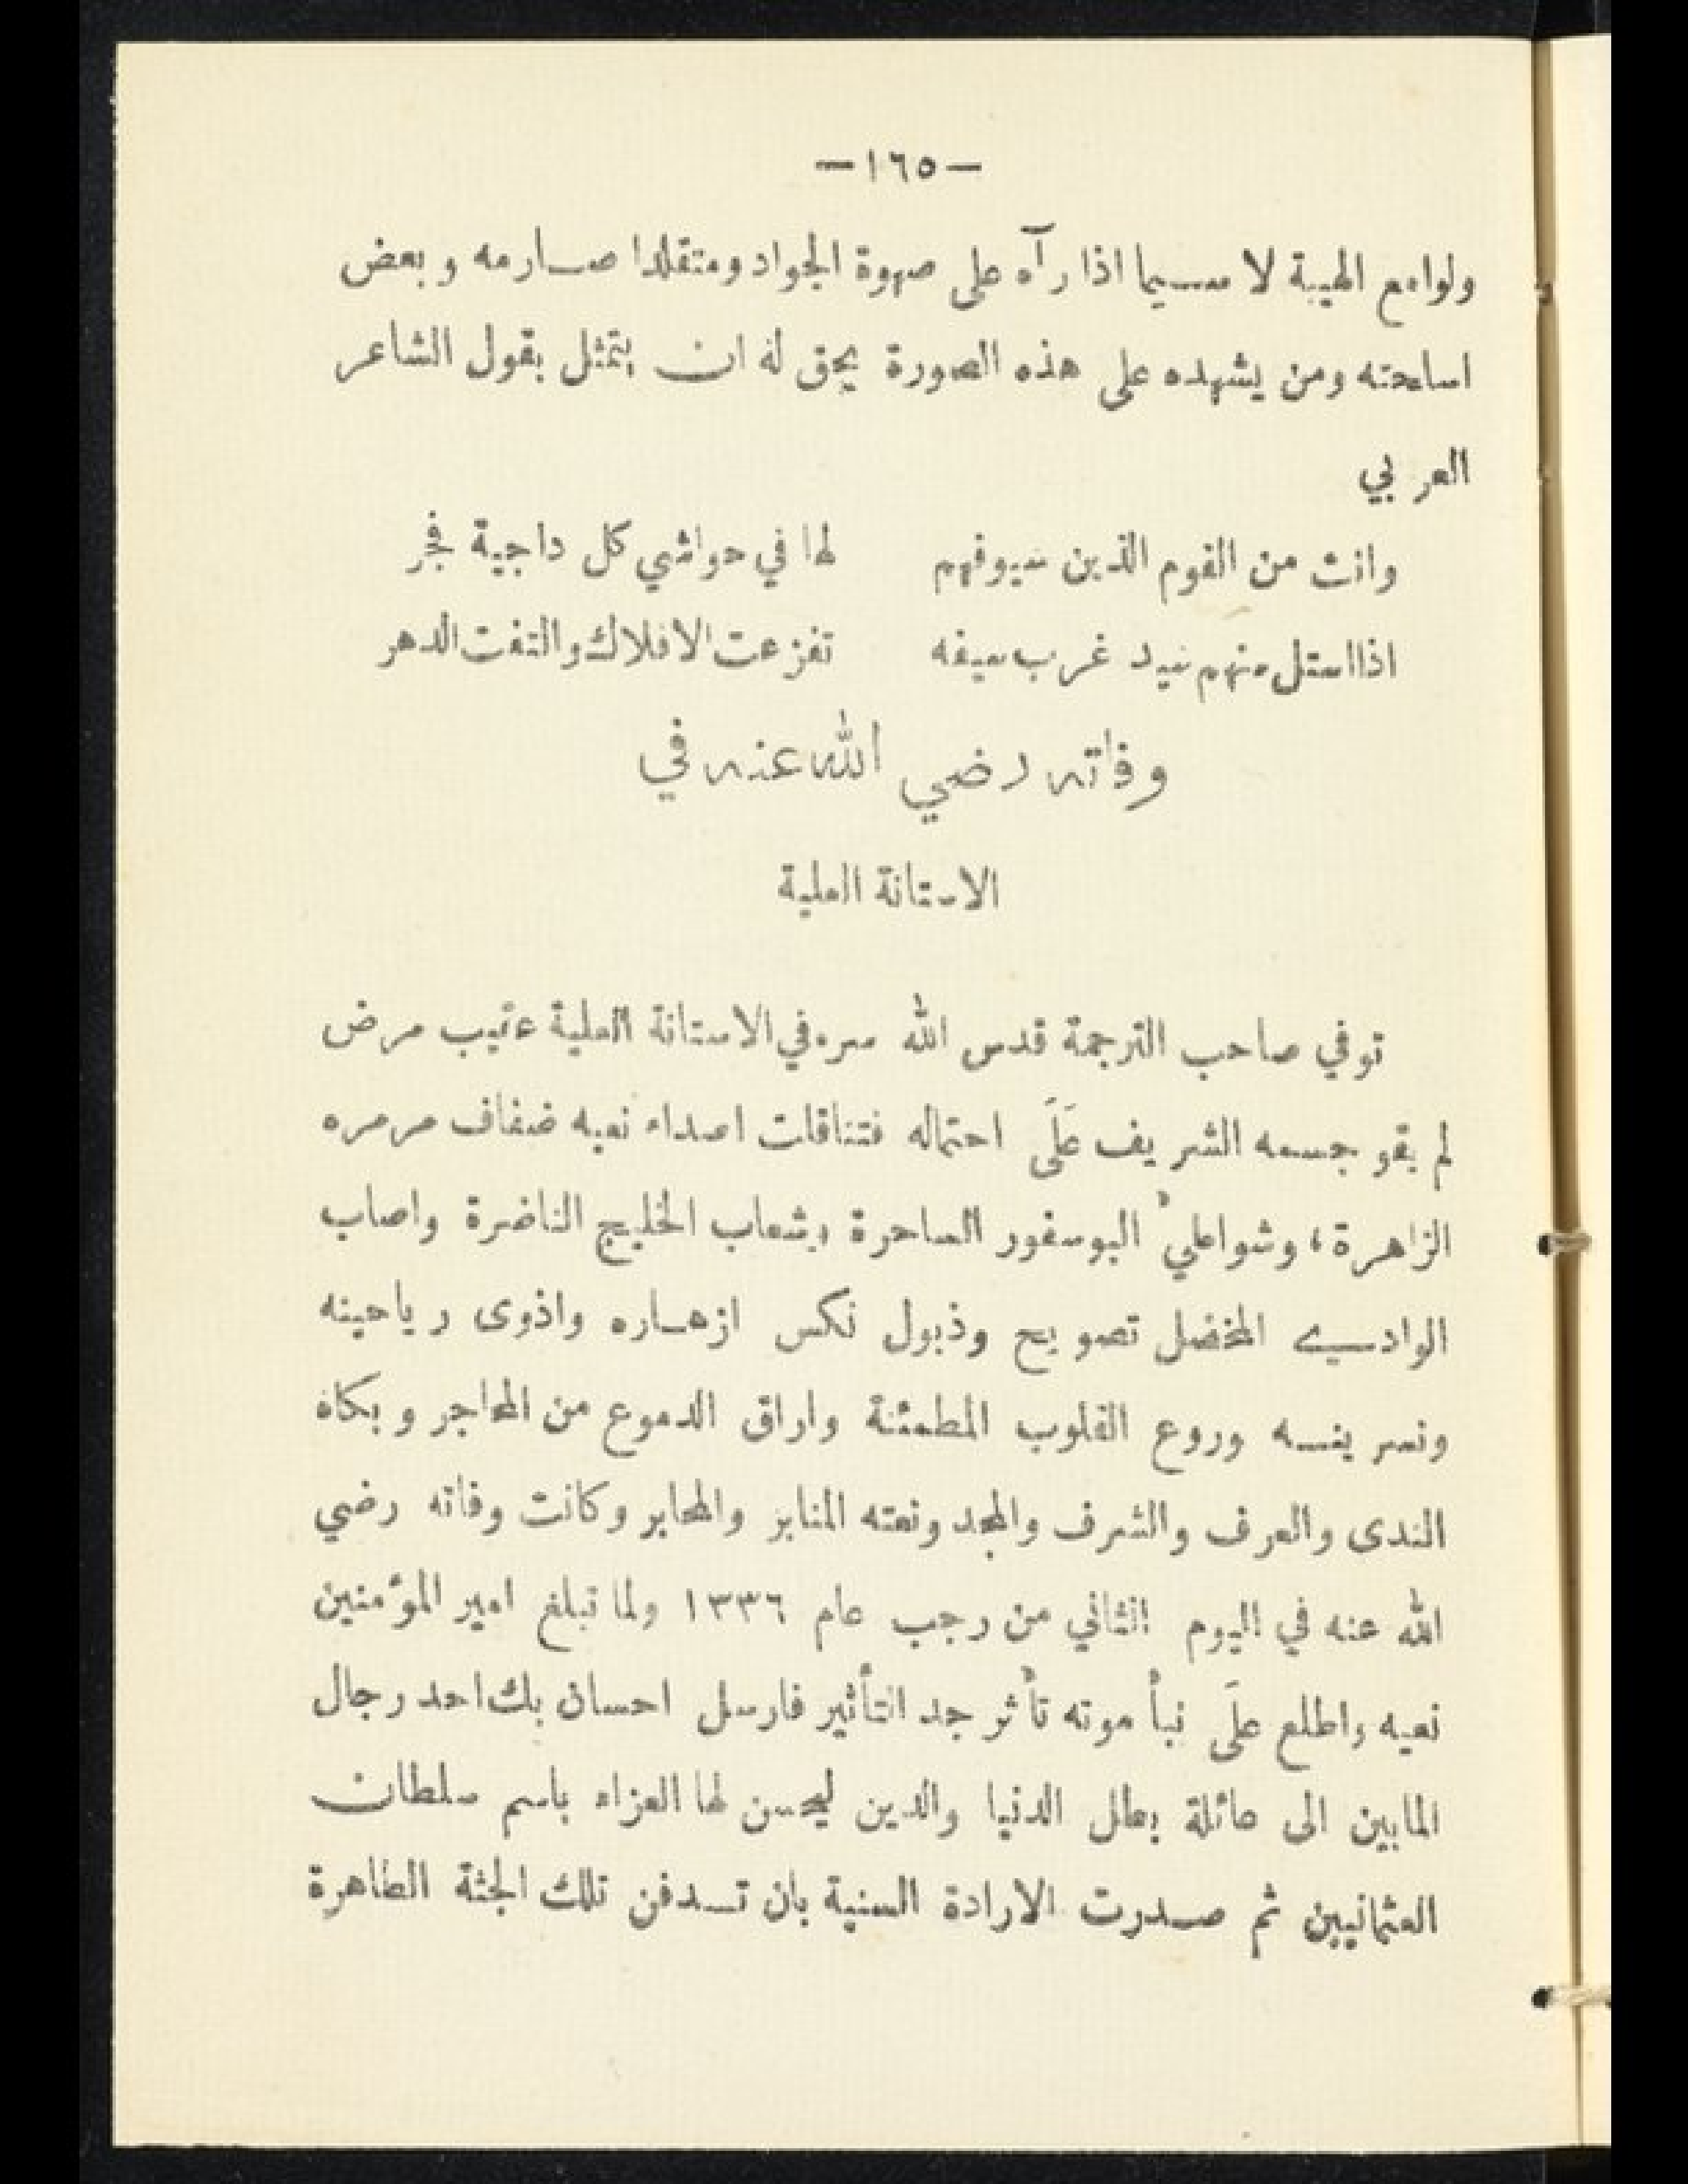 —١٦٥—
ولوامع الهيبة لا سيما اذا رآه على صهوة الجواد ومتقلدا صارمه وبعض
اسلحته ومن يشهده على هذه الصورة يحق له ان يتمثل بقول الشاعر
العربي
وانت من القوم الذين سيوفهم لها في حواشي كل داجية فجر
اذا استل منهم سيد غرب سيفه تفزعت الافلاك والتفت الدهر
وفاته رضي الله عنه في
الاستانة العلية
توفي صاحب الترجمة قدس الله سره في الاستانة العلية عقيب مرض
لم يقو جسمه الشريف عَلَى احتماله فتناقلت اصداء نعيه ضفاف مرمره
الزاهرة، وشواطئ البوسفور الساحرة وشعاب الخليج الناضرة واصاب
الوادي المخضل تصويح وذبول نكس ازهاره واذوى رياحينه
ونسرينه وروع القلوب المطمئنة واراق الدموع من المحاجر وبكاه
الندى والعرف والشرف والمجد ونعته المنابر والمحابر وكانت وفاته رضي
الله عنه في اليوم الثاني من رجب عام ١٣٣٦ ولما تبلغ امير المؤمنين
نعيه واطلع علَى نبأ موته تأثر جد التأثير فارسل احسان بك احد رجال
المابين الى عائلة بطل الدنيا والدين ليحسن لها العزاء باسم سلطان
العثمانيين ثم صدرت الارادة السنية بان تدفن تلك الجثة الطاهرة